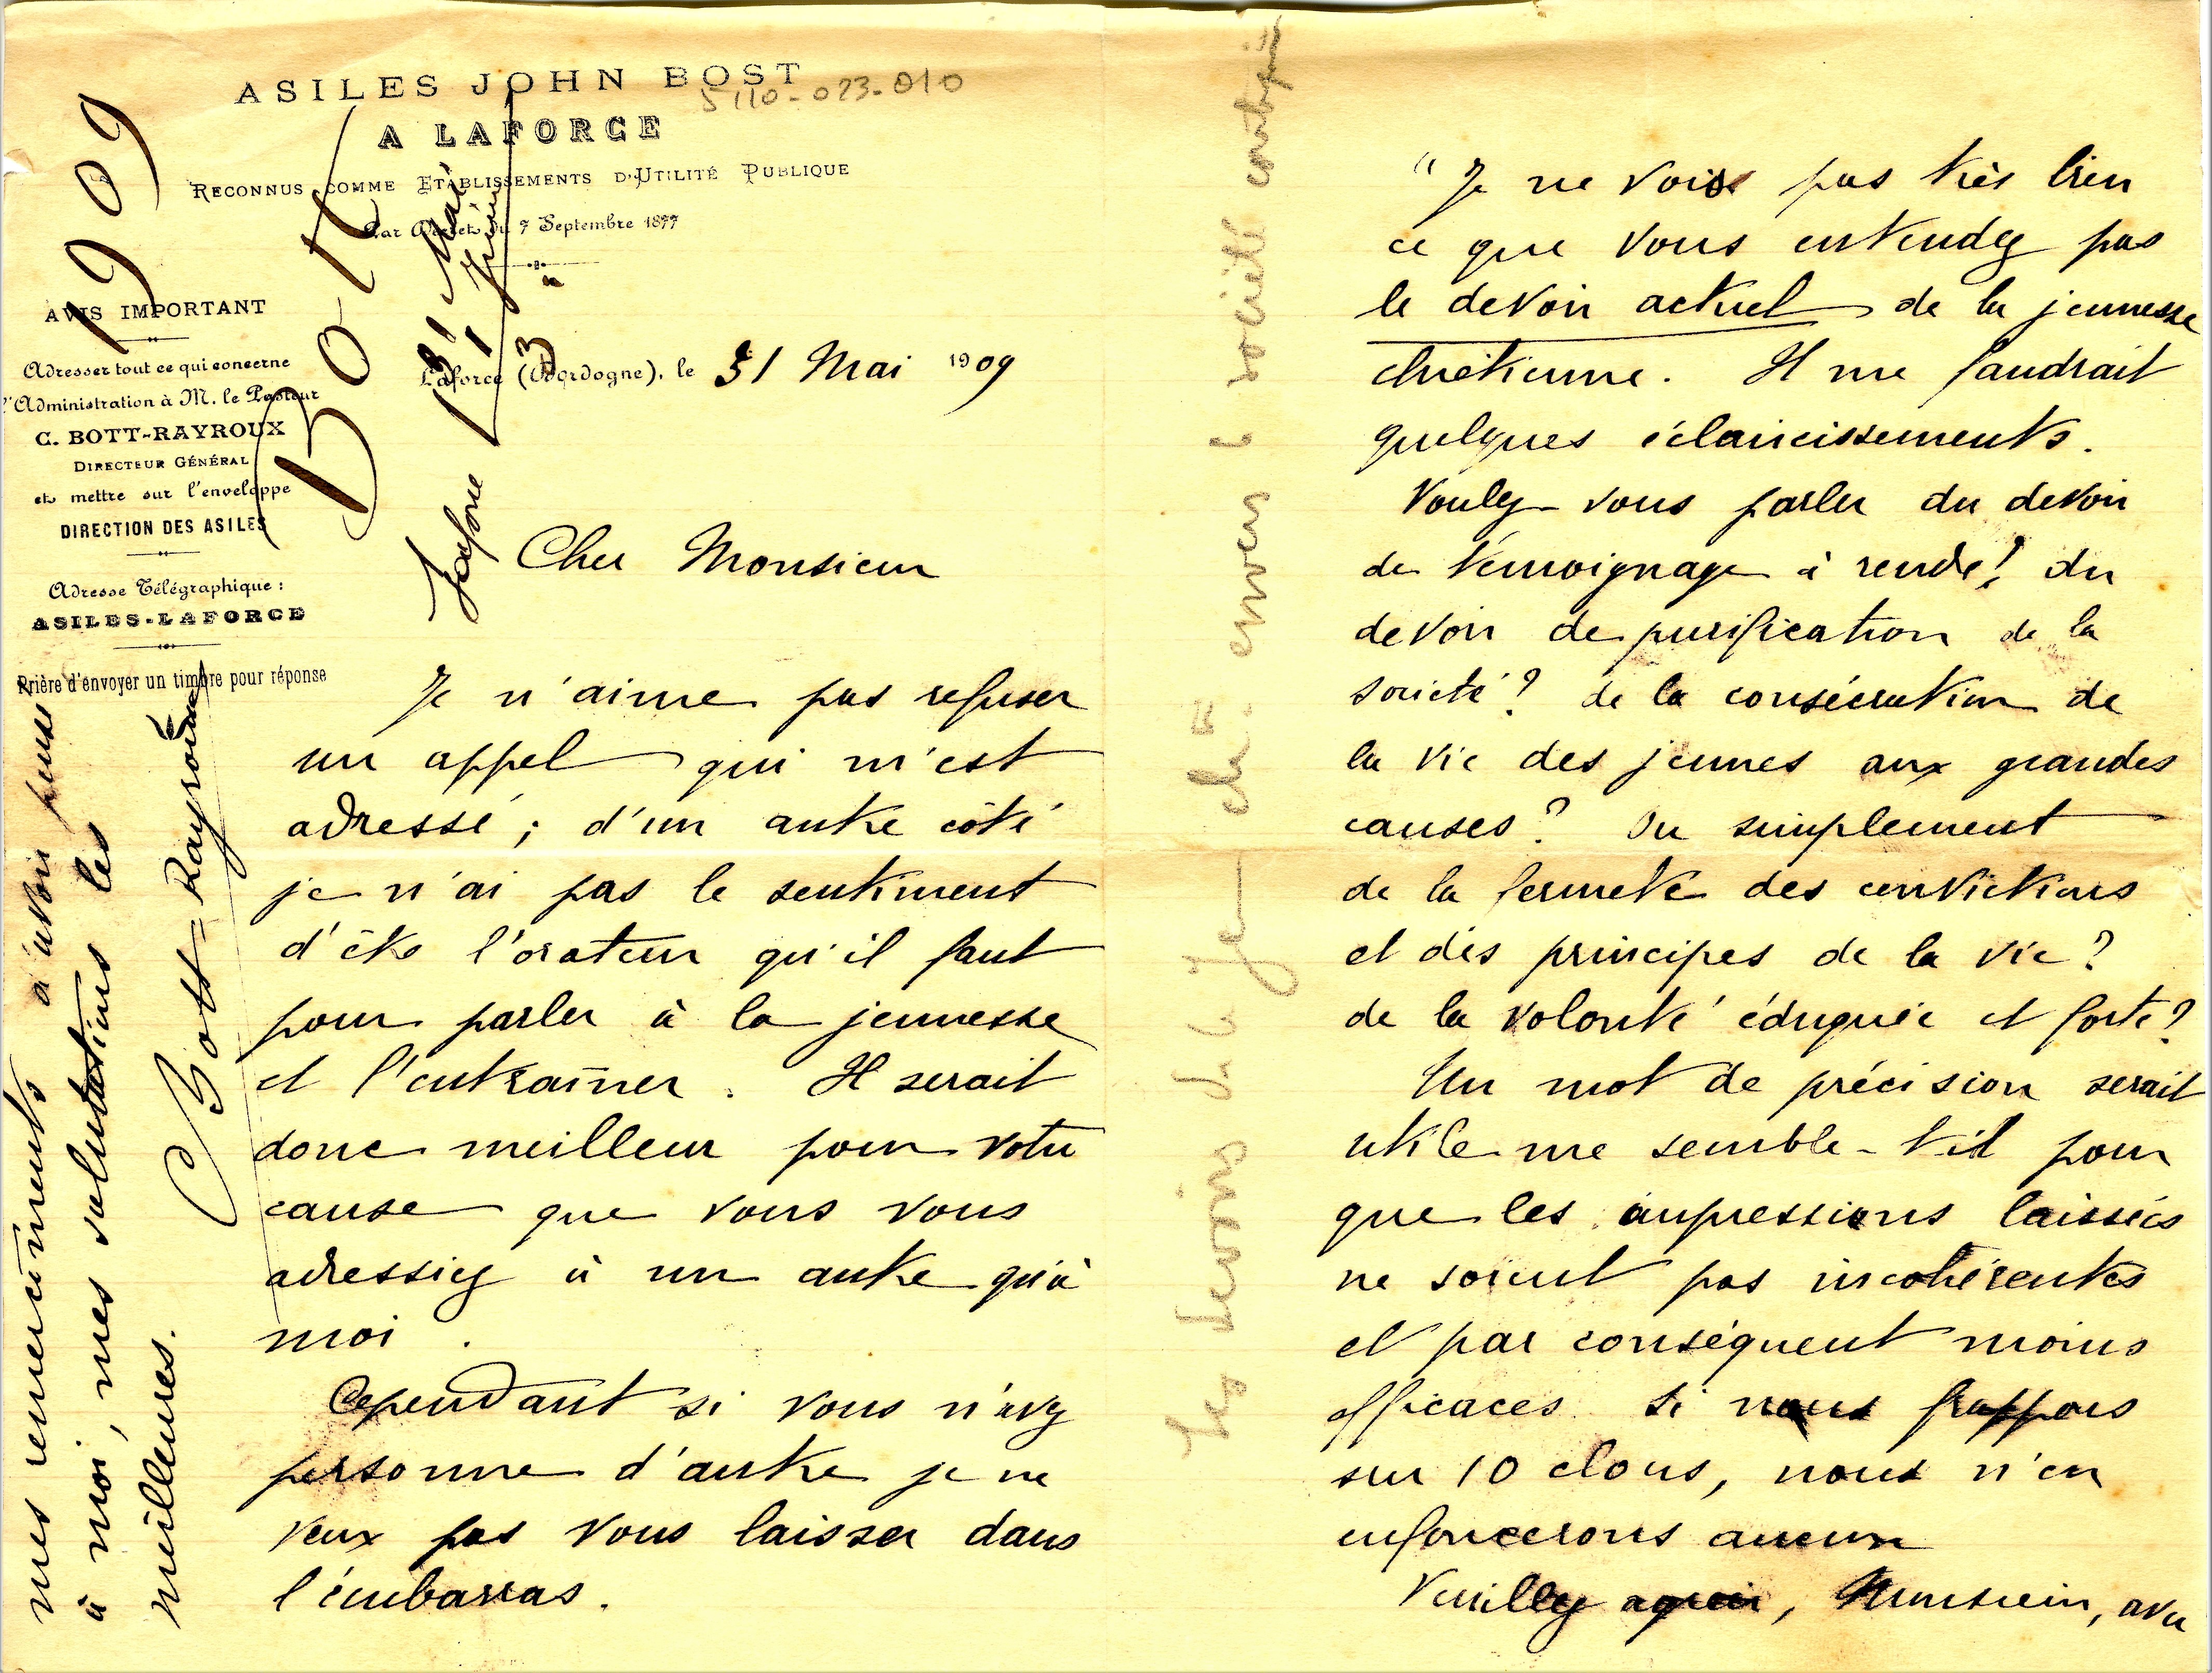 ASILES JOHN BOST
5110-023-010
A LAFORCE
RECONNUS COMME ETABLISSEMENTS D'UTILITÉ PUBLIQUE
Par Décret du 7 Septembre 1877
1909
AVIS IMPORTANT
Adresser tout ce qui concerne
l'Administration à M. le Pasteur
C. BOTT-RAYROUX
DIRECTEUR GÉNÉRAL
et mettre sur l'enveloppe
DIRECTION DES ASILES
Adresse Télégraphique :
ASILES-LAFORCE
Prière d'envoyer un timbre pour réponse
31 Mai
1 Juin
3
Laforce
Laforce (Dordogne), le 31 Mai 1909
Cher Monsieur
Je n'aime pas refuser
un appel qui m'est
adressé ; d'un autre côté
je n'ai pas le sentiment
d'être l'orateur qu'il faut
pour parler à la jeunesse
et l'entraîner. Il serait
donc meilleur pour votre
cause que vous vous
adressiez à un autre qu'à
moi.
Cependant si vous n'avez
personne d'autre je ne
veux pas vous laisser dans
l'embarras.
"Je ne vois pas très bien
ce que vous entendez pas
le devoir actuel de la jeunesse
chrétienne. Il me faudrait
quelques éclaircissements.
Voulez-vous parler du devoir
de témoignage à rendre? du
devoir de purification de la
société? de la consécration de
la vie des jeunes aux grandes
causes? Ou simplement
de la fermeté des convictions
et des principes de la vie?
de la volonté éduquée et forte?
Un mot de précision serait
utile me semble-t-il pour
que les impressions laissées
ne soient pas incohérentes
et par conséquent moins
efficaces. Si nous frappons
sur 10 clous, nous n'en
enfoncerons aucun
Veuillez agréer, Monsieur, avec
mes remerciements d'avoir pensé
à moi, mes salutations les
meilleures.
C Bott-Rayroux
Les devoirs de la Je ch. envers la société